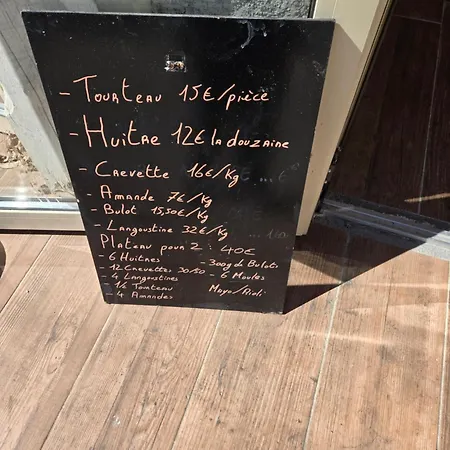 - Tourteau 15€/pièce
- Huitre 12€ la douzaine
- Crevette 16€/Kg
- Amande 7€/Kg
- Bulot 15,50€/Kg
- Langoustine 32€/Kg
Plateau pour 2 : 40€
- 6 Huitres
- 12 Crevettes 30/50
- 4 Langoustines
- 1/2 Tourteau
- 4 Amandes
- 300g de Bulots
- 6 Moules
Mayo/Aioli